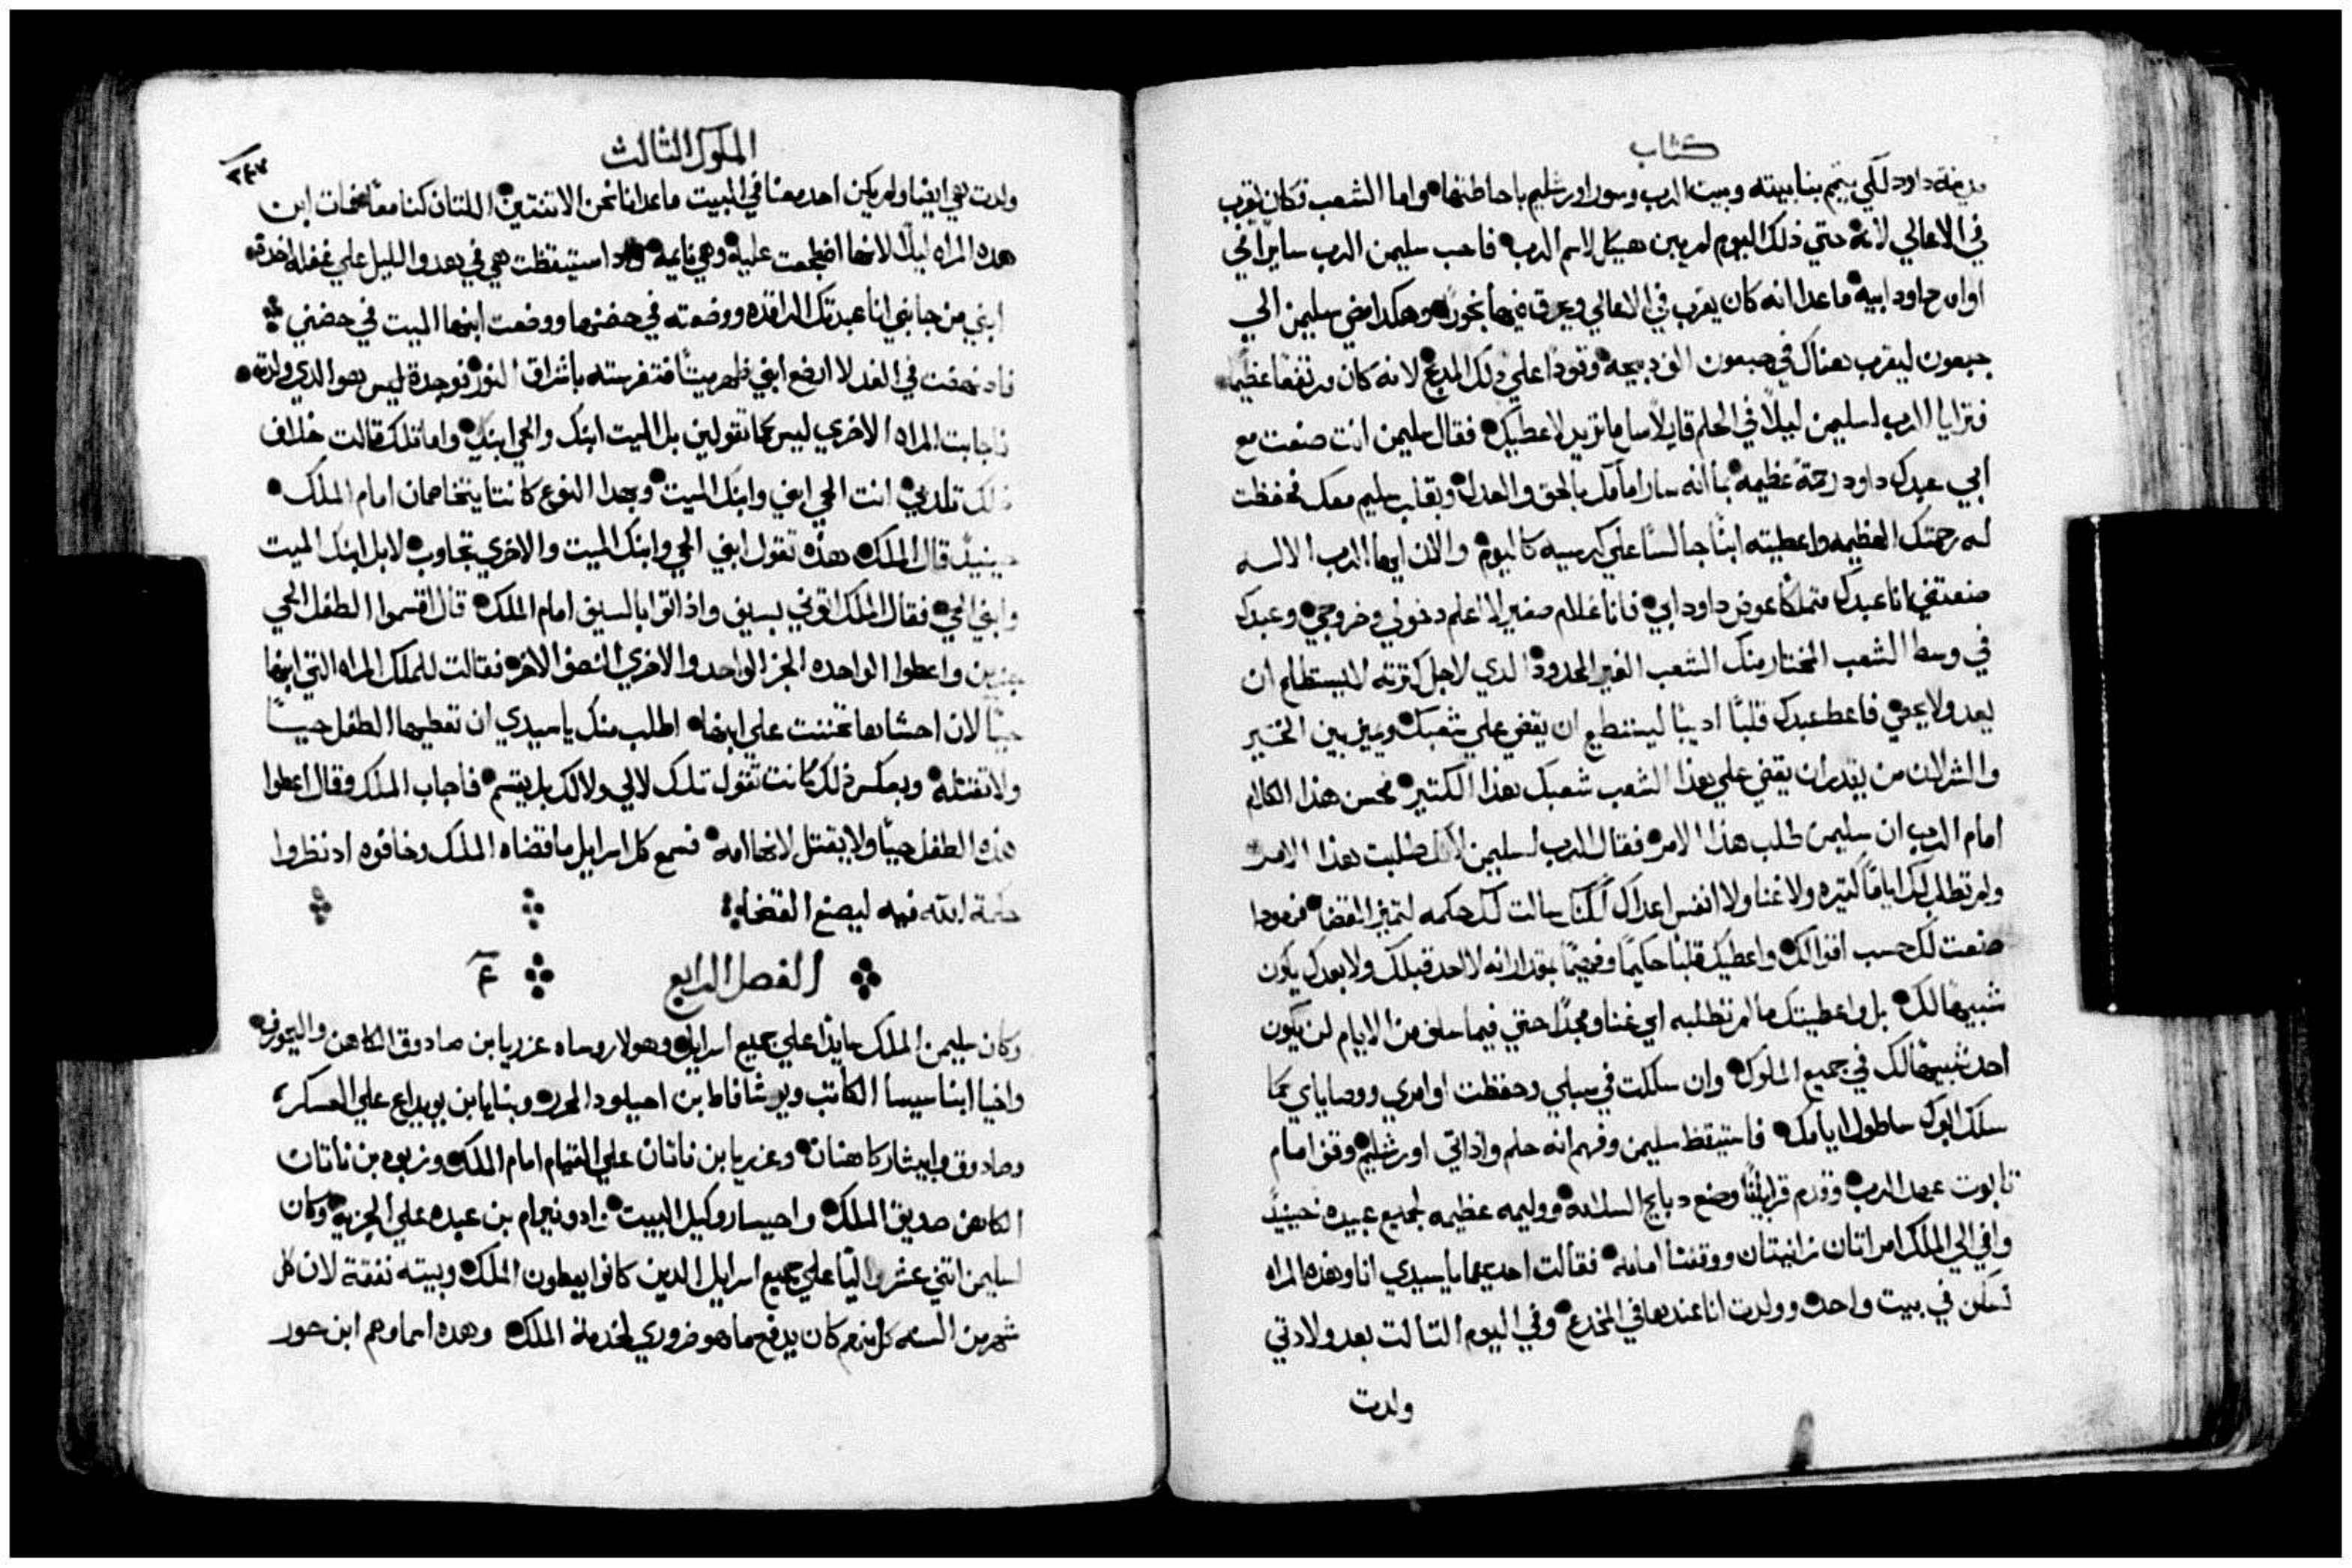 كتاب
مدينة داود لكي يتمم بنا بيته وبيت الرب وسور اورشليم باحاطتها واما الشعب فكان يقرب
في الاعالي لانه حتي ذلك اليوم لم يبن هيكل لاسم الرب فاحب سليمن الرب سايرًا في
اوامر داود ابيه ماعدا انه كان يقرب في الاعالي ويحرق فيها بخورًا وهكدا مضي سليمن الي
جبعون ليقرب هناك في جبعون الف دبيحه وقودًا علي ذلك المدبح لانه كان مرتفعًا عظيمًا
فترايا الرب لسليمن ليلًا في الحلم قايلًا سل ما تريد لاعطيك فقال سليمن انت صنعت مع
ابي عبدك داود رحمةً عظيمه بما انه سار امامك بالحق والعدل وبقلب سليم معك فحفظت
له رحمتك العظيمه واعطيته ابنًا جالسًا علي كرسيه كاليوم والان ايها الرب الاله
صنعتني انا عبدك متملكًا عوض داود ابي فانا غلام صغير لا اعلم دخولي وخروجي وعبدك
في وسط الشعب المختار منك الشعب الغير المحدود الدي لاجل كترته لا يستطاع ان
يعد ولا يحصي فاعط عبدك قلبًا اديبًا ليستطيع ان يقضي علي شعبك ويميز بين الخير
والشر لان من يقدر ان يقضي علي هذا الشعب شعبك هذا الكتير فحسن هذا الكلام
امام الرب ان سليمن طلب هذا الامر فقال الرب لسليمن لانك طلبت هذا الامر
ولم تطلب لك ايامًا كتيره ولا غنا ولا انفس اعداك لكنك سالت لك حكمه لتميز القضا فهودا
صنعت لك حسب اقوالك واعطيك قلبًا حكيمًا وفهيمًا بمقدار انه لا احد قبلك ولا بعدك يكون
شبيهًا لك بل واعطيتك ما لم تطلبه اي غنا ومجدًا حتي فيما سلف من الايام لن يكون
احد شبيهًا لك في جميع الملوك وان سلكت في سبلي وحفظت اوامري ووصاياي كما
سلك ابوك ساطول ايامك فاستيقظ سليمن وفهم انه حلم واذ اتي اورشليم وقف امام
تابوت عهد الرب وقدم قرابينًا وصنع دبايح السلامه ووليمه عظيمه لجميع عبيده حينيدً
وافي الي الملك امراتان زانيتان ووقفتا امامه فقالت احديهما يا سيدي انا وهذه المراه
نسكن في بيت واحد وولدت انا عندها في المخدع وفي اليوم التالت بعد ولادتي
ولدت
الملوك الثالث
٢٤٧
ولدت هي ايضا ولم يكن احد معنا في البيت ماعدانا نحن الاتنتين اللتان كنا معًا فمات ابن
هده المراه ليلًا لانها اضجعت عليه وهي نايمه واد استيقظت هي في هدو الليل علي غفله اخدت
ابني من جانبي انا عبدتك الراقده ووضعته في حضنها ووضعت ابنها الميت في حضني
فاد نهضت في الغد لارضع ابني ظهر ميتًا فتفرسته باشراق النور فوجدته ليس هو الدي ولدته
فاجابت المراه الاخري ليس كما تقولين بل الميت ابنك والحي ابني واما تلك قالت خلاف
ذلك تكدبي انت الحي ابني وابنك الميت وبهدا النوع كانتا يتخاصمان امام الملك
حينيدً قال الملك هذه تقول ابني الحي وابنك الميت والاخري تجاوب لا بل ابنك الميت
وابني الحي فقال الملك اتوني بسيف واذ اتوا بالسيف امام الملك قال اقسموا الطفل الحي
جزين واعطوا الواحده الجز الواحد والاخري النصف الاخر فقالت للملك المراه التي ابنها
حيًا لان احشاها تحننت علي ابنها اطلب منك يا سيدي ان تعطيها الطفل حيًا
ولا تقتله وبعكس ذلك كانت تقول تلك لا لي ولا لك بل يقسم فاجاب الملك وقال اعطوا
هذه الطفل حيًا ولا يقتل لانها امه فسمع كل اسرايل ما قضاه الملك وخافوه اد نظروا
حكمة الله فيه ليصنع القضا
الفصل الرابع ٤
وكان سليمن الملك سايدًا علي جميع اسرايل وهولا روساه عزريا بن صادوق الكاهن واليحورف
واخيا ابنا سيسا الكاتب ويوشافاط بن احيلود المحرر وبنايا بن يويداع علي العسكر
وصادوق وابيثار كاهنان وعزريا بن ناتان علي القيام امام الملك وزبود بن ناتان
الكاهن صديق الملك واحيسار وكيل البيت وادونيرام بن عبده علي الجزيه وكان
لسليمن اتني عشر واليًا علي جميع اسرايل الدين كانوا يعطون الملك وبيته نفقة لان كل
شهر من السنه كل منهم كان يدفع ما هو ضروري لخدمة الملك وهده اسماوهم ابن حور